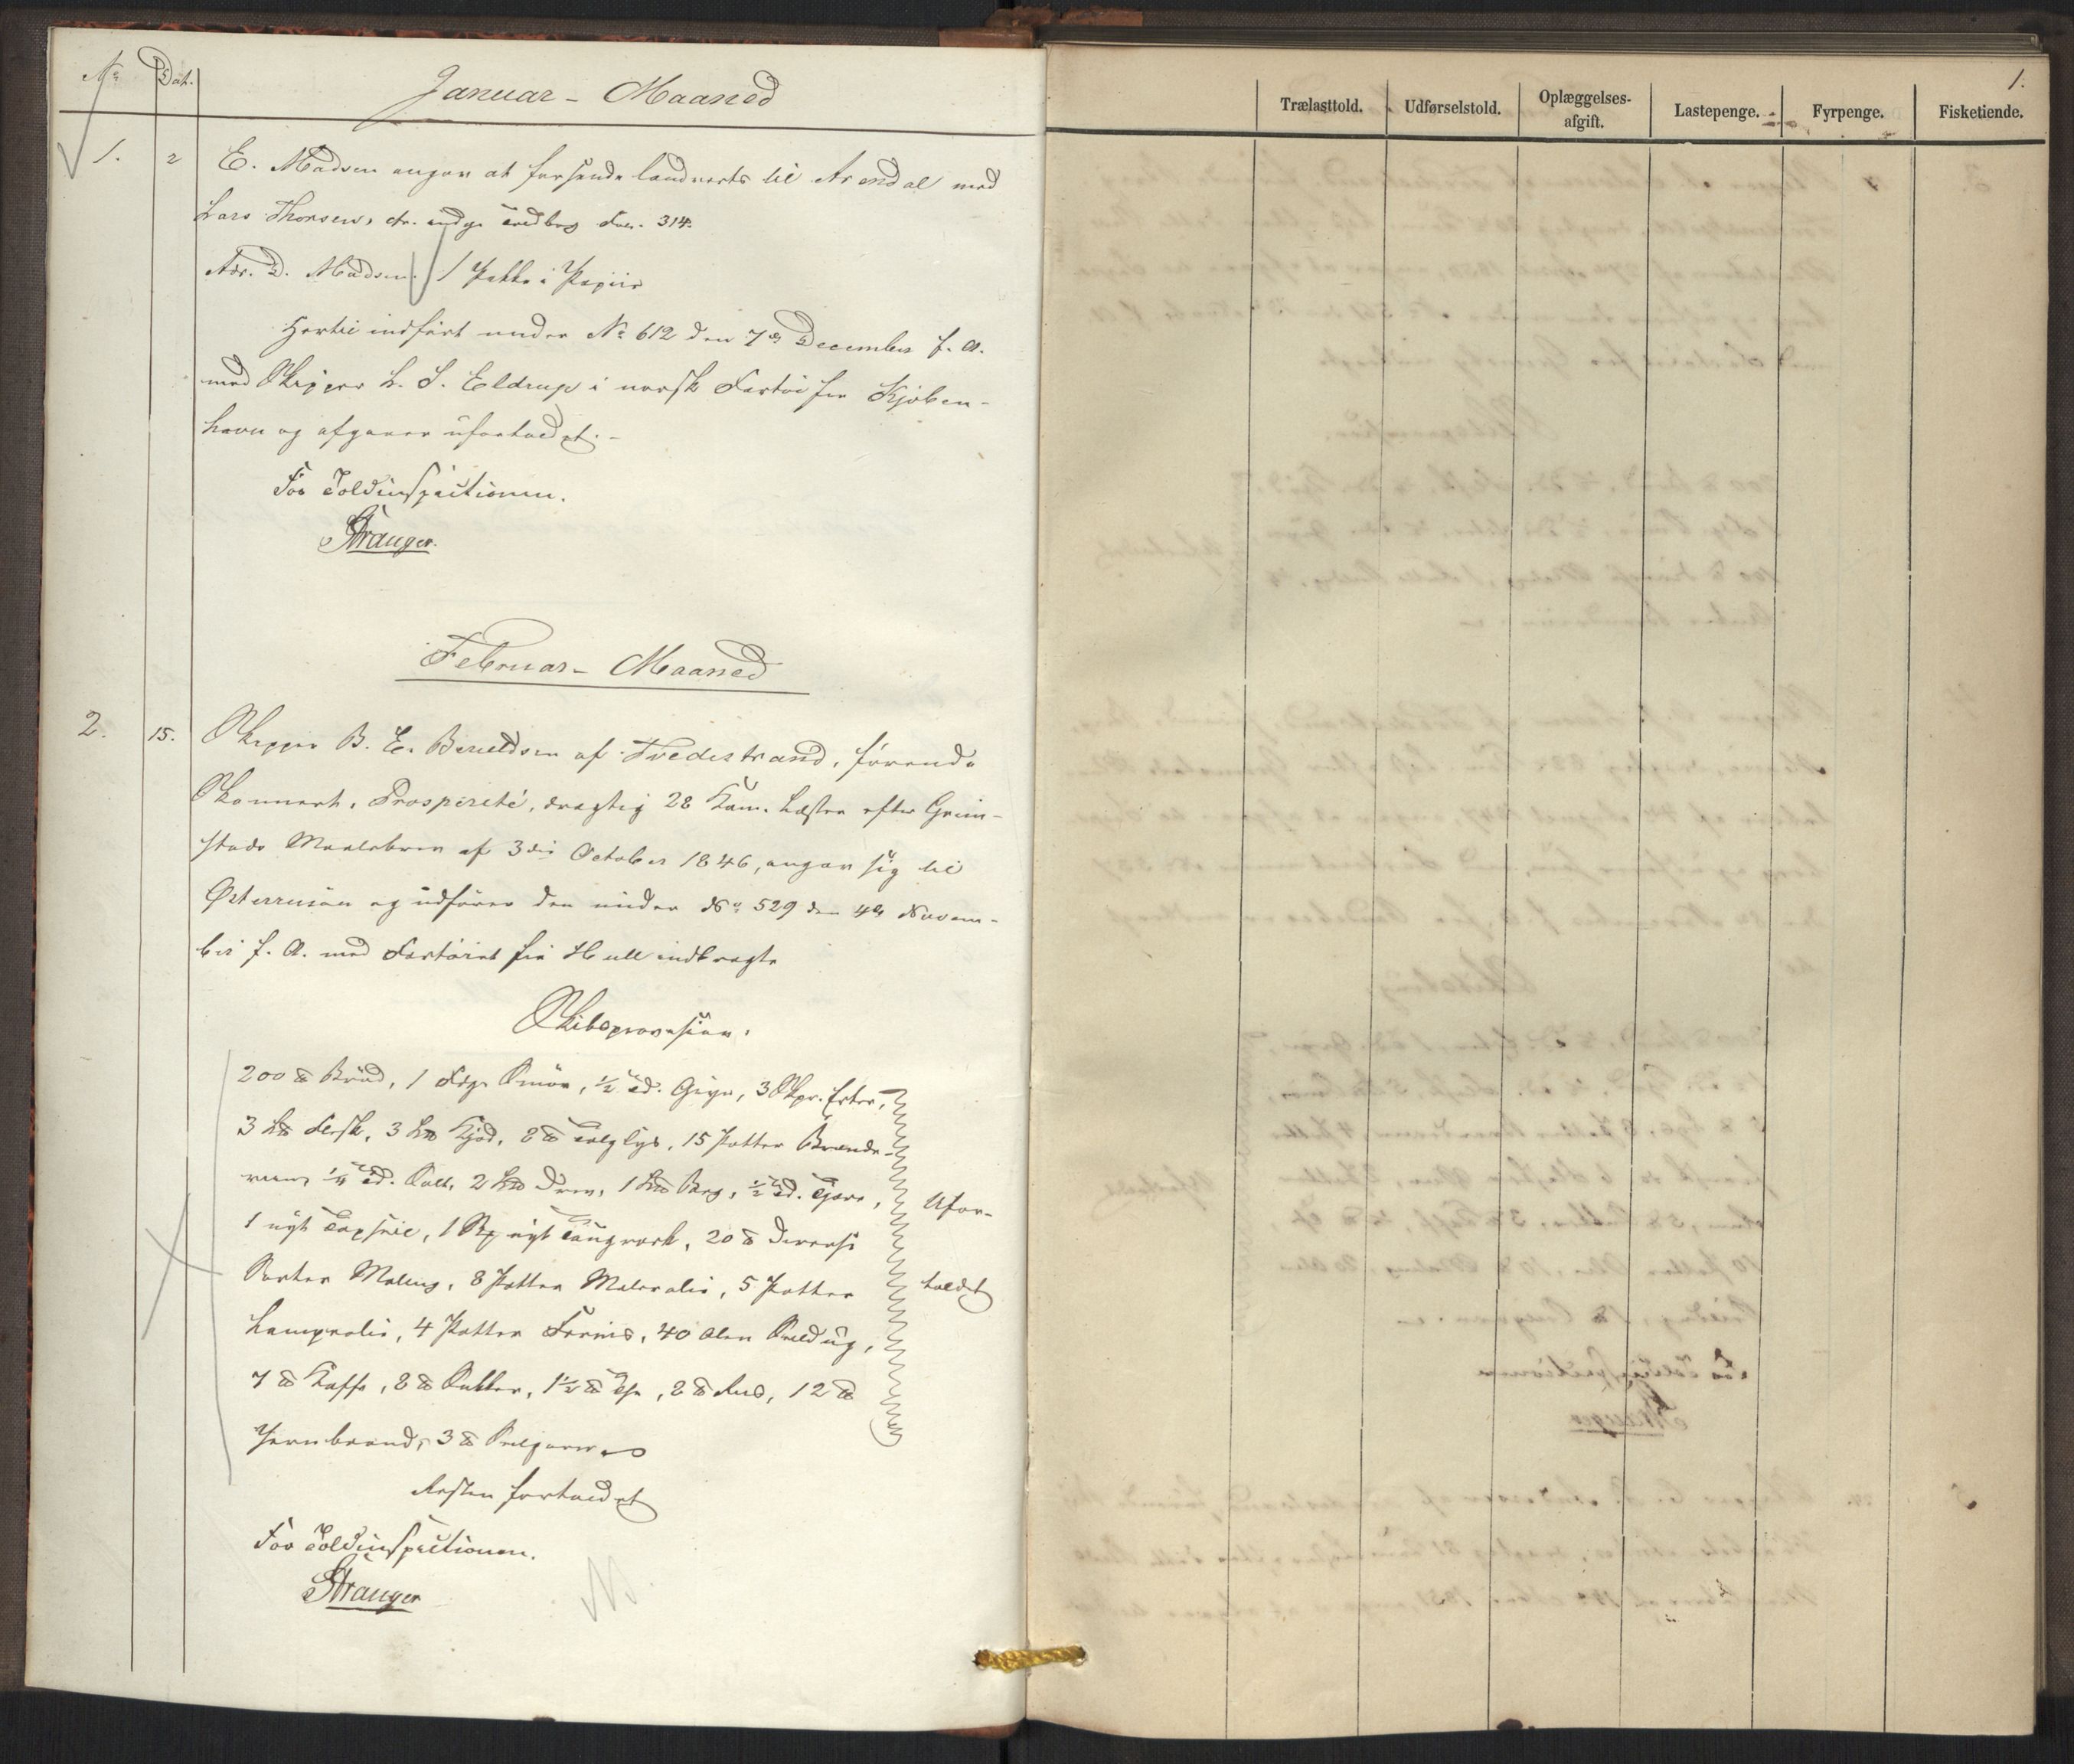 No Dat. Januar - Maaned
1. 2 E. Madsen angav at forsende landverts til Arendal med
Lars Thorsen, cfr. Fol. 314.
Adr. D. Madsen. 1 Pakke i Papiir
Hertil indført under No 612 den 7de December f. A.
med Skipper L. S. Eldrup i norsk Fartøi fra Kjøben-
havn og afgaaer ufortoldet. -
For Toldinspectionen.
Stranger.
Februar - Maaned
2. 15. Skipper B. E. Berueldsen af Tvedestrand, førende
Skonnert, Prosperité, drægtig 28 Kom. Læster efter Grim-
stads Maalebrev af 3die October 1846, angav sig til
Østerrisøer og udfører den under No 529 den 4de Novem-
ber f. A. med Fartøiet fra Hull indbragte
Skibsprovision:
200 ℔ Brød, 1 Smør, ½ Td. Gryn, 3 Skpr. Erter,
3 L℔ Flesk, 3 L℔ Kjød, 8 ℔ Talglys, 15 Potter Brænde-
viin, ¼ Td. Salt, 2 L℔ Drev, 1 L℔ Beg, ½ Td. Tjære, Ufor-
1 nyt Topseil, 1 nyt Tougværk, 20 ℔ diverse
Sorter Maling, 8 Potter Malerolie, 5 Potter toldet
Lampeolie, 4 Potter Fernis, 40 Alen Seildug,
7 ℔ Kaffe, 8 ℔ Sukker, 1½ ℔ The, 2 ℔ Riis, 12 ℔
3 ℔ Seilgarn
Resten fortoldet
For Toldinspectionen.
Stranger
1.
Trælasttold. Udførselstold. Oplæggelses-
afgift. Lastepenge. Fyrpenge. Fisketiende.